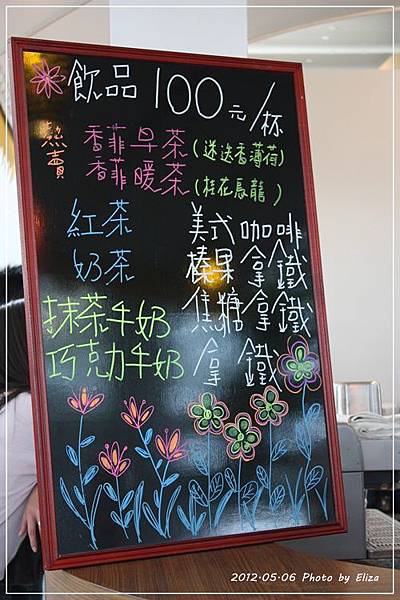 飲品 100元/杯
熱賣
香菲早茶(迷迭香薄荷)
香菲暖茶(桂花烏龍)
紅茶 美式咖啡
奶茶 榛果拿鐵
抹茶牛奶 焦糖拿鐵
巧克力牛奶 拿鐵
2012.05.06 Photo by Eliza